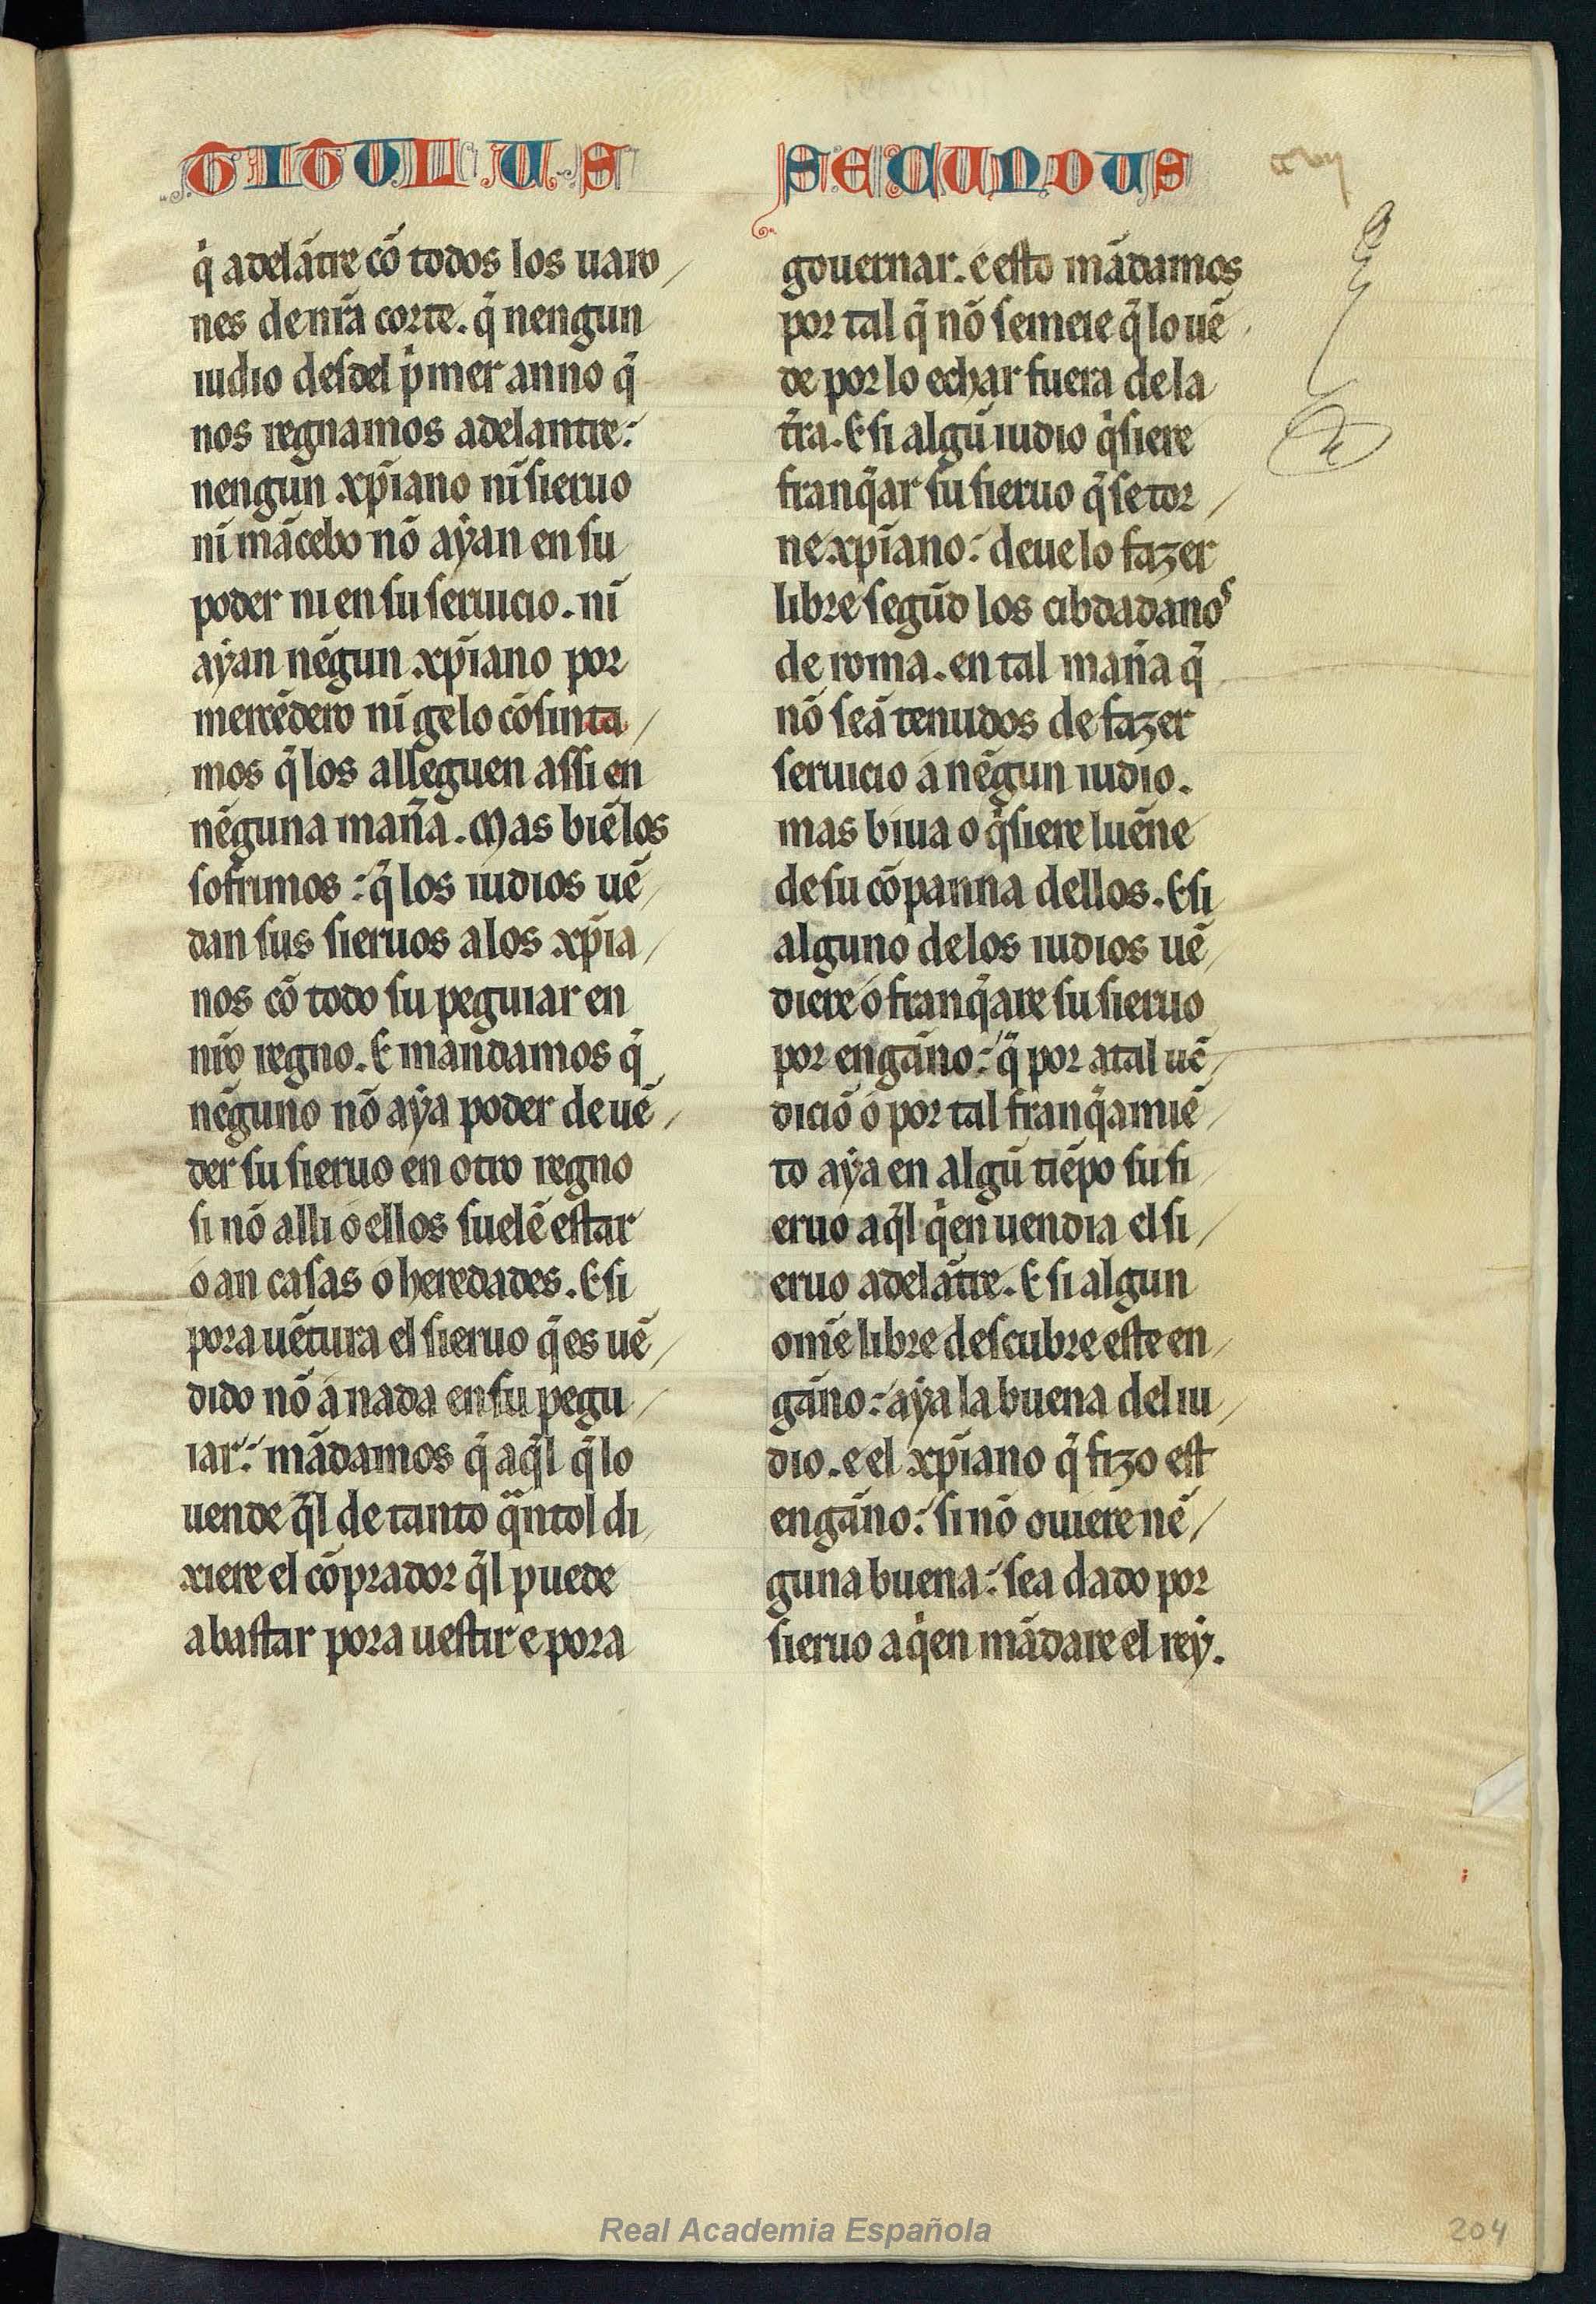 TITULUS
q̇ adelãtre cõ todos los uaro /
nes de nr̃a corte. q̃ nengun
iudio desdel p̍mer anno q̃
nos regnamos adelantre:
nengun xp̃iano nĩ sieruo
nĩ mãcebo nõ aẏan en su
poder ni en su seruicio. nĩ
aẏan nẽgun xp̃iano por
mercẽdero nĩ gelo cõsinta /
mos q̃ los alleguen assi en
nẽguna mañã. Mas biẽ los
sofrimos : q̃ los iudios uẽ /
dan sus sieruos a los xp̃ia /
nos cõ todo su peguiar en
nr̃o regno. E mandamos q̃
nẽguno nõ aẏa poder de uẽ /
der su sieruo en otro regno
si nõ alli o ellos suelẽ estar
o an casas o heredades. E si
por auẽtura el sieruo q̃ es uẽ /
dido nõ a nada en su pegu /
iar: mãdamos q̃ aq̃l q̃ lo
uende q̃l de tanto q̃ntol di /
xiere el cõprador q̃l puede
abastar pora uestir e pora
SECUNDUS
gouernar. e esto mãdamos
por tal q̃ nõ semeie q̃ lo uẽ /
de por lo echar fuera de la
tr̃ra. E si algũ iudio q̍siere
franq̃ar su sieruo q̃ se tor /
ne xp̃iano: deue lo fazer
libre segũd los cibdadanos
de roma. en tal mañã q̃
nõ seã tenudos de fazer
seruicio a nẽgun iudio.
mas biua o q̍siere luẽne
de su cõpanna dellos. E si
alguno de los iudios uẽ /
diere o franq̃are su sieruo
por engãno: q̃ por atal uẽ /
diciõ o por tal franq̃amiẽ /
to aẏa en algũ tiẽpo su si /
eruo aq̃l q̍en uendia el si /
eruo adelãtre. E si algun
om̃e libre descubre este en /
gãno: aẏa la buena del iu /
dio. e el xp̃iano q̃ fizo est
engãno: si nõ ouiere nẽ /
guna buena: sea dado por
sieruo a q̍en mãdare el reẏ.
Real Academia Española
204